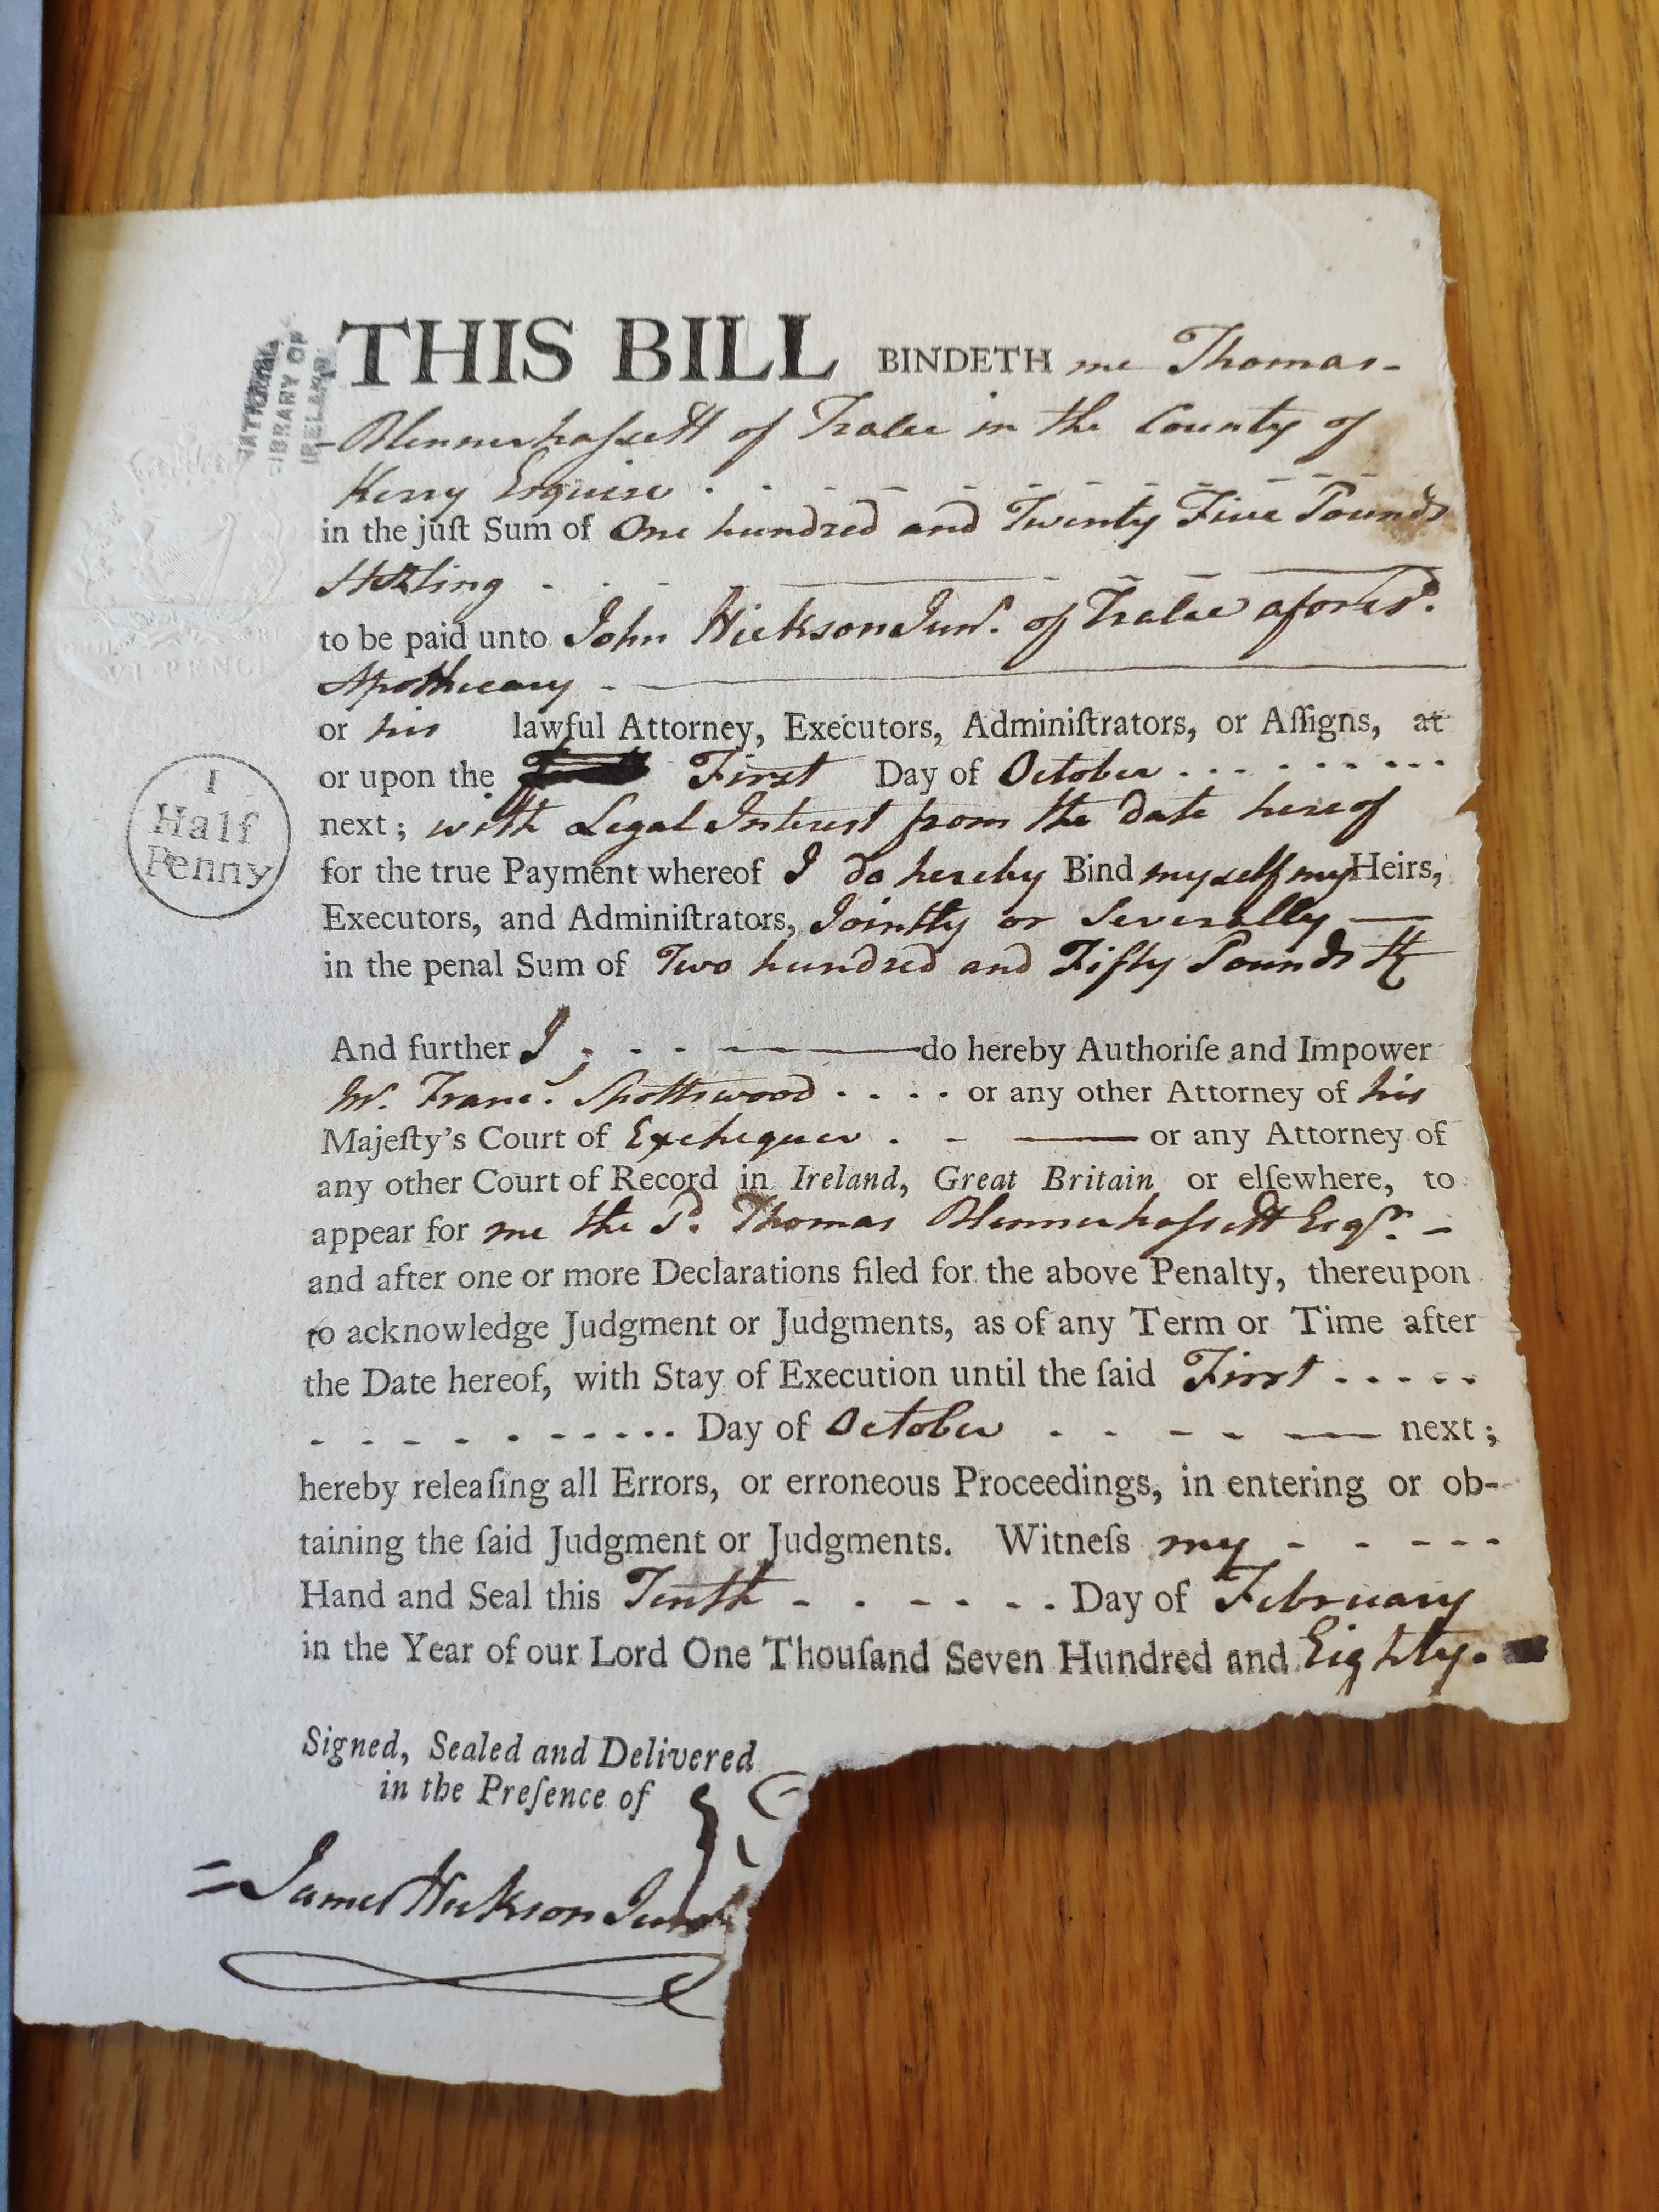 NATIONAL
LIBRARY OF
IRELAND
THIS BILL BINDETH me Thomas-
-Blennerhaſsett of Tralee in the County of
Kerry Esquire
in the juſt Sum of One hundred and Twenty Five Pounds
Sterling
to be paid unto John Hickson Junr. of Tralee aforesd.
Apothecary
or his lawful Attorney, Executors, Adminiſtrators, or Aſſigns, at
or upon the First Day of October
next; with Legal Interest from the date hereof
for the true Payment whereof I do hereby Bind myself my Heirs,
Executors, and Adminiſtrators, Jointly or Severally
in the penal Sum of Two hundred and Fifty Pounds
And further I do hereby Authoriſe and Impower
Mr. Frans. Spottswood or any other Attorney of his
Majeſty's Court of Exchequer or any Attorney of
any other Court of Record in Ireland, Great Britain or elſewhere, to
appear for me the sd. Thomas Blennerhaſsett Esqr.
and after one or more Declarations filed for the above Penalty, thereupon
to acknowledge Judgment or Judgments, as of any Term or Time after
the Date hereof, with Stay of Execution until the ſaid First
Day of October next;
hereby releaſing all Errors, or erroneous Proceedings, in entering or ob-
taining the ſaid Judgment or Judgments. Witneſs my
Hand and Seal this Tenth Day of February
in the Year of our Lord One Thouſand Seven Hundred and Eighty.
Signed, Sealed and Delivered
in the Preſence of
James Hickson Junr
VI·PENCE
I
Half
Penny